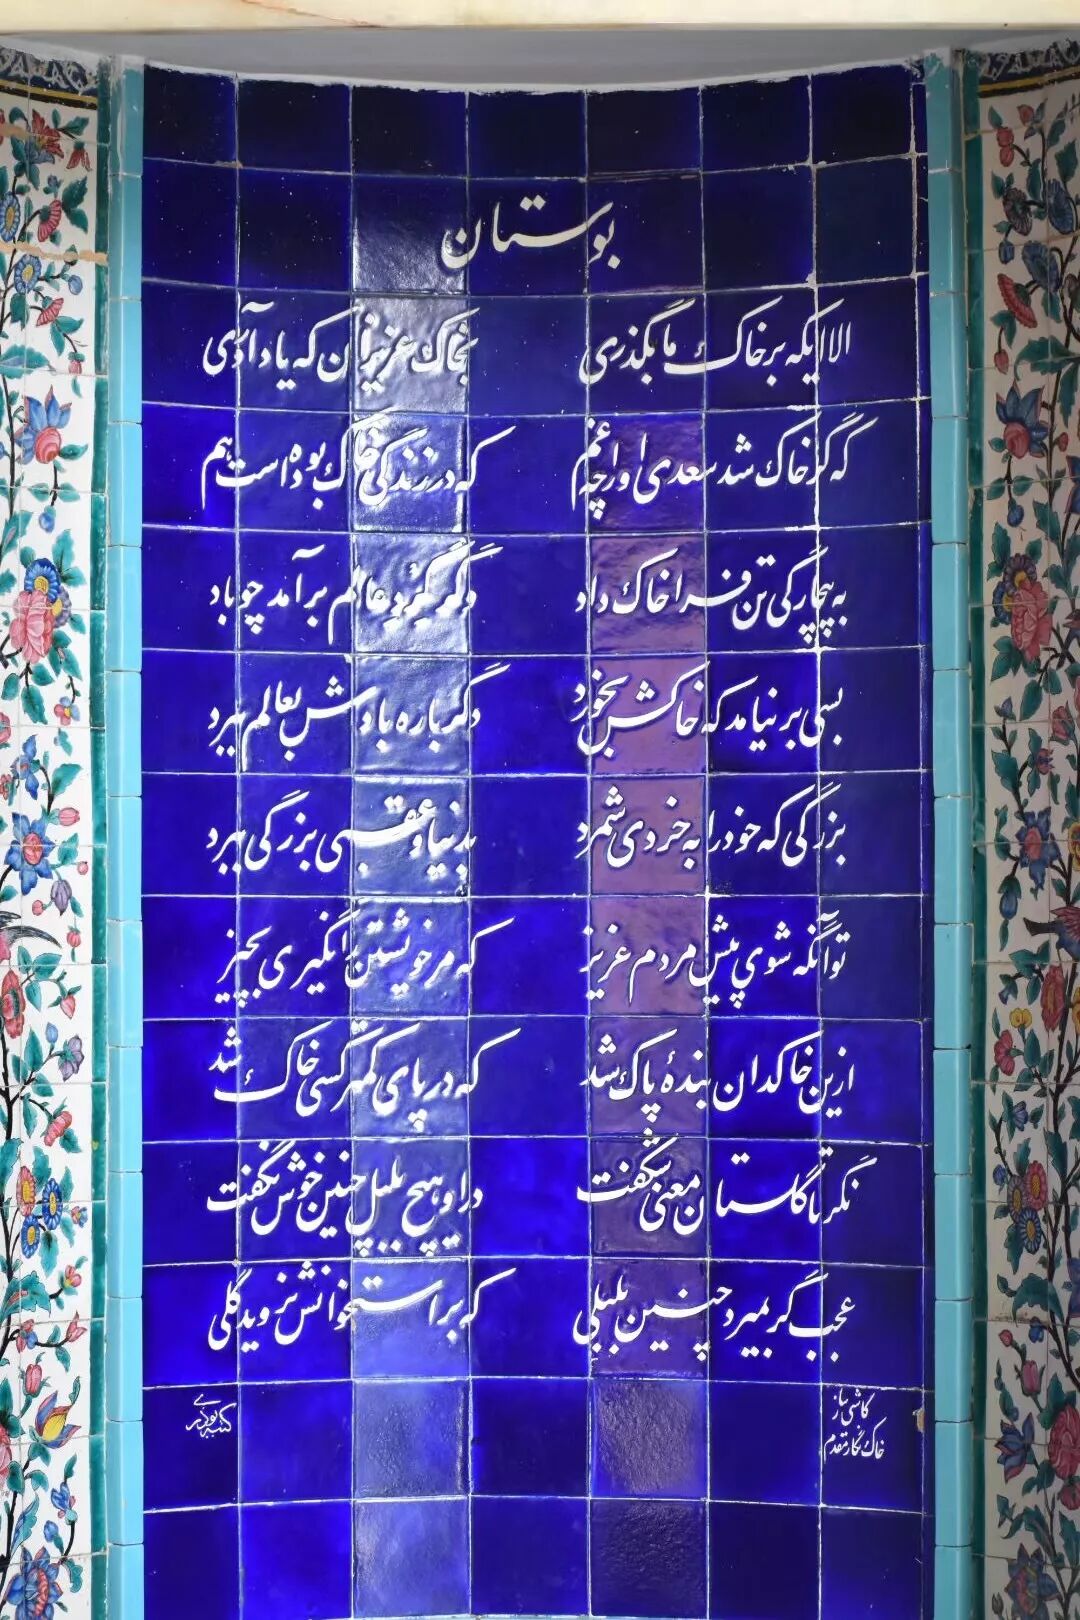 بوستان
الا ایکه بر خاک ما بگذری بخاک عزیزان که یاد آوری
که گر خاک شد سعدی او را چه غم که در زندگی خاک بوده است هم
به بیچارگی تن فرا خاک داد دگر گرد عالم بر آمد چو باد
بسی بر نیامد که خاکش بخورد دگر باره بادش بعالم ببرد
بزرگی که خود را به خردی شمرد بدنیا و عقبی بزرگی ببرد
تو آنگه شوی پیش مردم عزیز که مر خویشتن را نگیری بچیز
ازین خاکدان بندهٔ پاک شد که در پای کمتر کسی خاک شد
نگر تا گلستان معنی شکفت در او هیچ بلبل چنین خوش نگفت
عجب گر بمیرد چنین بلبلی که بر استخوانش نروید گلی
کاشی ساز
خاک نگار مقدم
کتبه بوذری